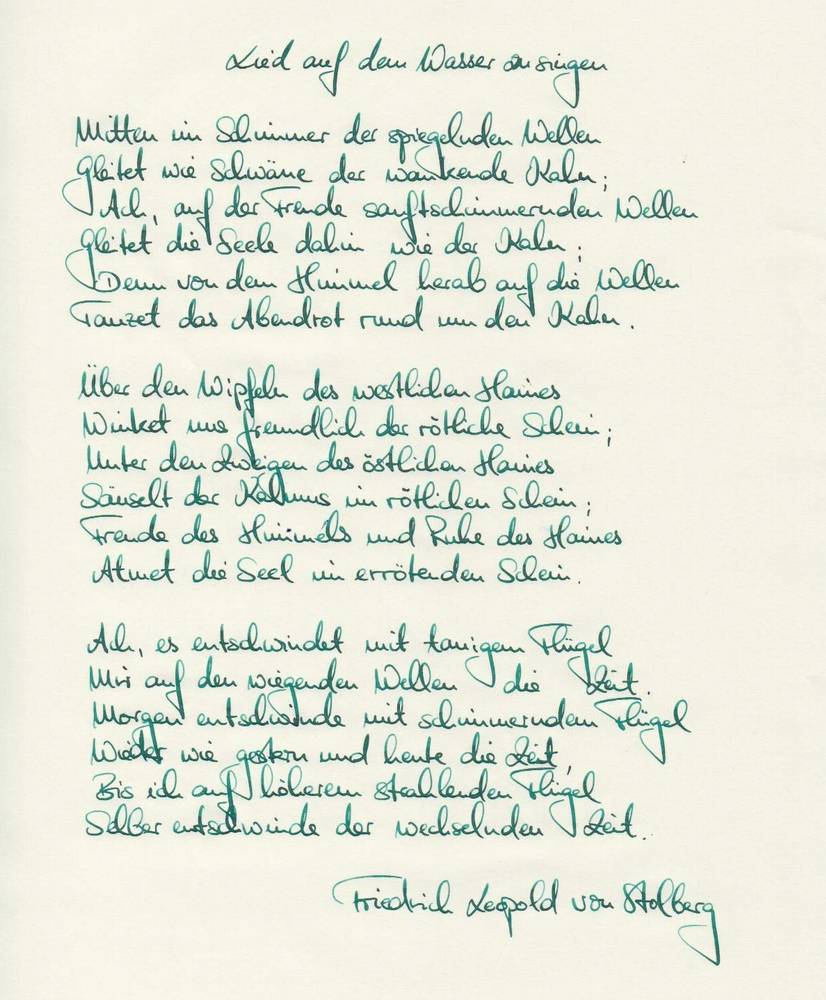 Lied auf dem Wasser zu singen
Mitten im Schimmer der spiegelnden Wellen
Gleitet wie Schwäne der wankende Kahn;
Ach, auf der Freude sanftschimmernden Wellen
Gleitet die Seele dahin wie der Kahn;
Denn von dem Himmel herab auf die Wellen
Tanzet das Abendrot rund um den Kahn.
Über den Wipfeln des westlichen Haines
Winket uns freundlich der rötliche Schein;
Unter den Zweigen des östlichen Haines
Säuselt der Kalmus im rötlichen Schein;
Freude des Himmels und Ruhe des Haines
Atmet die Seel im errötenden Schein.
Ach, es entschwindet mit tauigem Flügel
Mir auf den wiegenden Wellen die Zeit.
Morgen entschwinde mit schimmerndem Flügel
Wieder wie gestern und heute die Zeit,
Bis ich auf höherem strahlenden Flügel
Selber entschwinde der wechselnden Zeit.
Friedrich Leopold von Stolberg